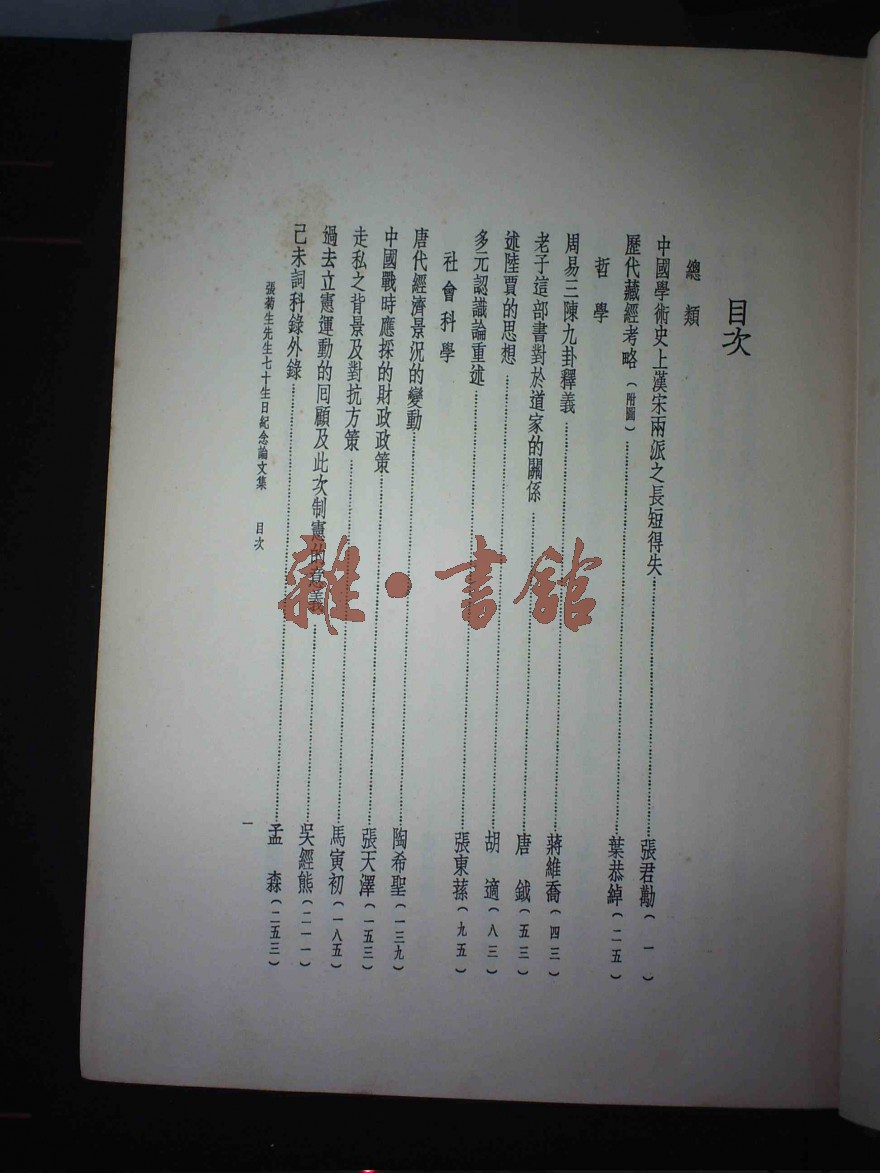 目次
總類
中國學術史上漢宋兩派之長短得失……張君勱(一)
歷代藏經考略(附圖)……葉恭綽(二五)
哲學
周易三陳九卦釋義……蔣維喬(四三)
老子這部書對於道家的關係……唐鉞(五三)
述陸賈的思想……胡適(八三)
多元認識論重述……張東蓀(九五)
社會科學
唐代經濟景況的變動……陶希聖(一三九)
中國戰時應採的財政政策……張天澤(一五三)
走私之背景及對抗方策……馬寅初(一八五)
過去立憲運動的回顧及此次制憲的意義……吳經熊(二一一)
己未詞科錄外錄……孟森(二五三)
張菊生先生七十生日紀念論文集 目次
一
雜·書館